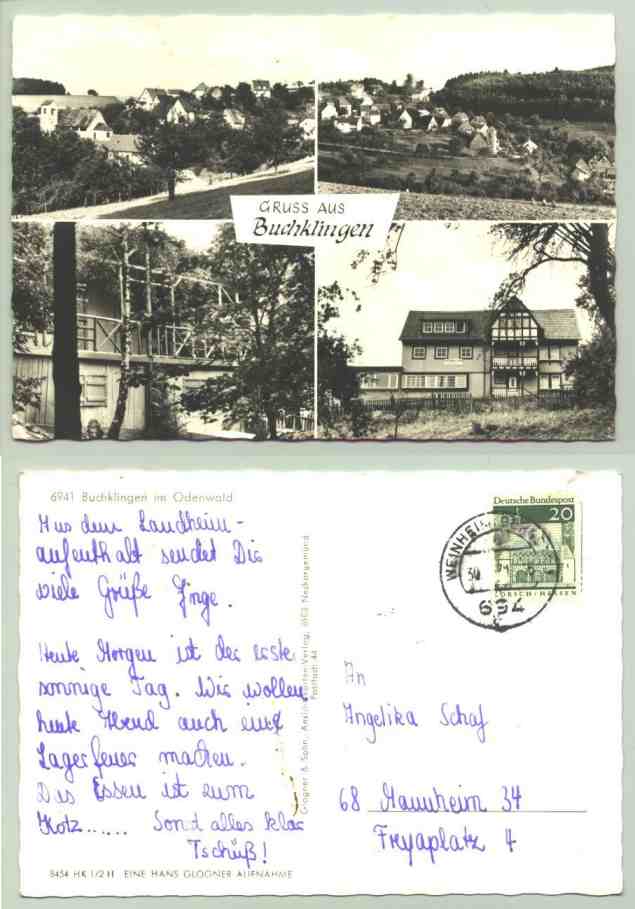 GRUSS AUS
Buchklingen
6941 Buchklingen im Odenwald
Aus dem Landheim-
aufenthalt sendet Dir
viele Grüße Inge.
Heute Morgen ist der erste
sonnige Tag. Wir wollen
heute Abend auch ein
Lagerfeuer machen.
Das Essen ist zum
Kotz...... Sonst alles klar
Tschüß!
8454 HK 1/2 H EINE HANS GLOGNER AUFNAHME
Glogner & Sohn, Ansichtskarten-Verlag, 6903 Neckargemünd
Postfach 44
Deutsche Bundespost
20
LORSCH/HESSEN
WEINHEIM
694
An
Angelika Schaf
68 Mannheim 34
Freyaplatz 4